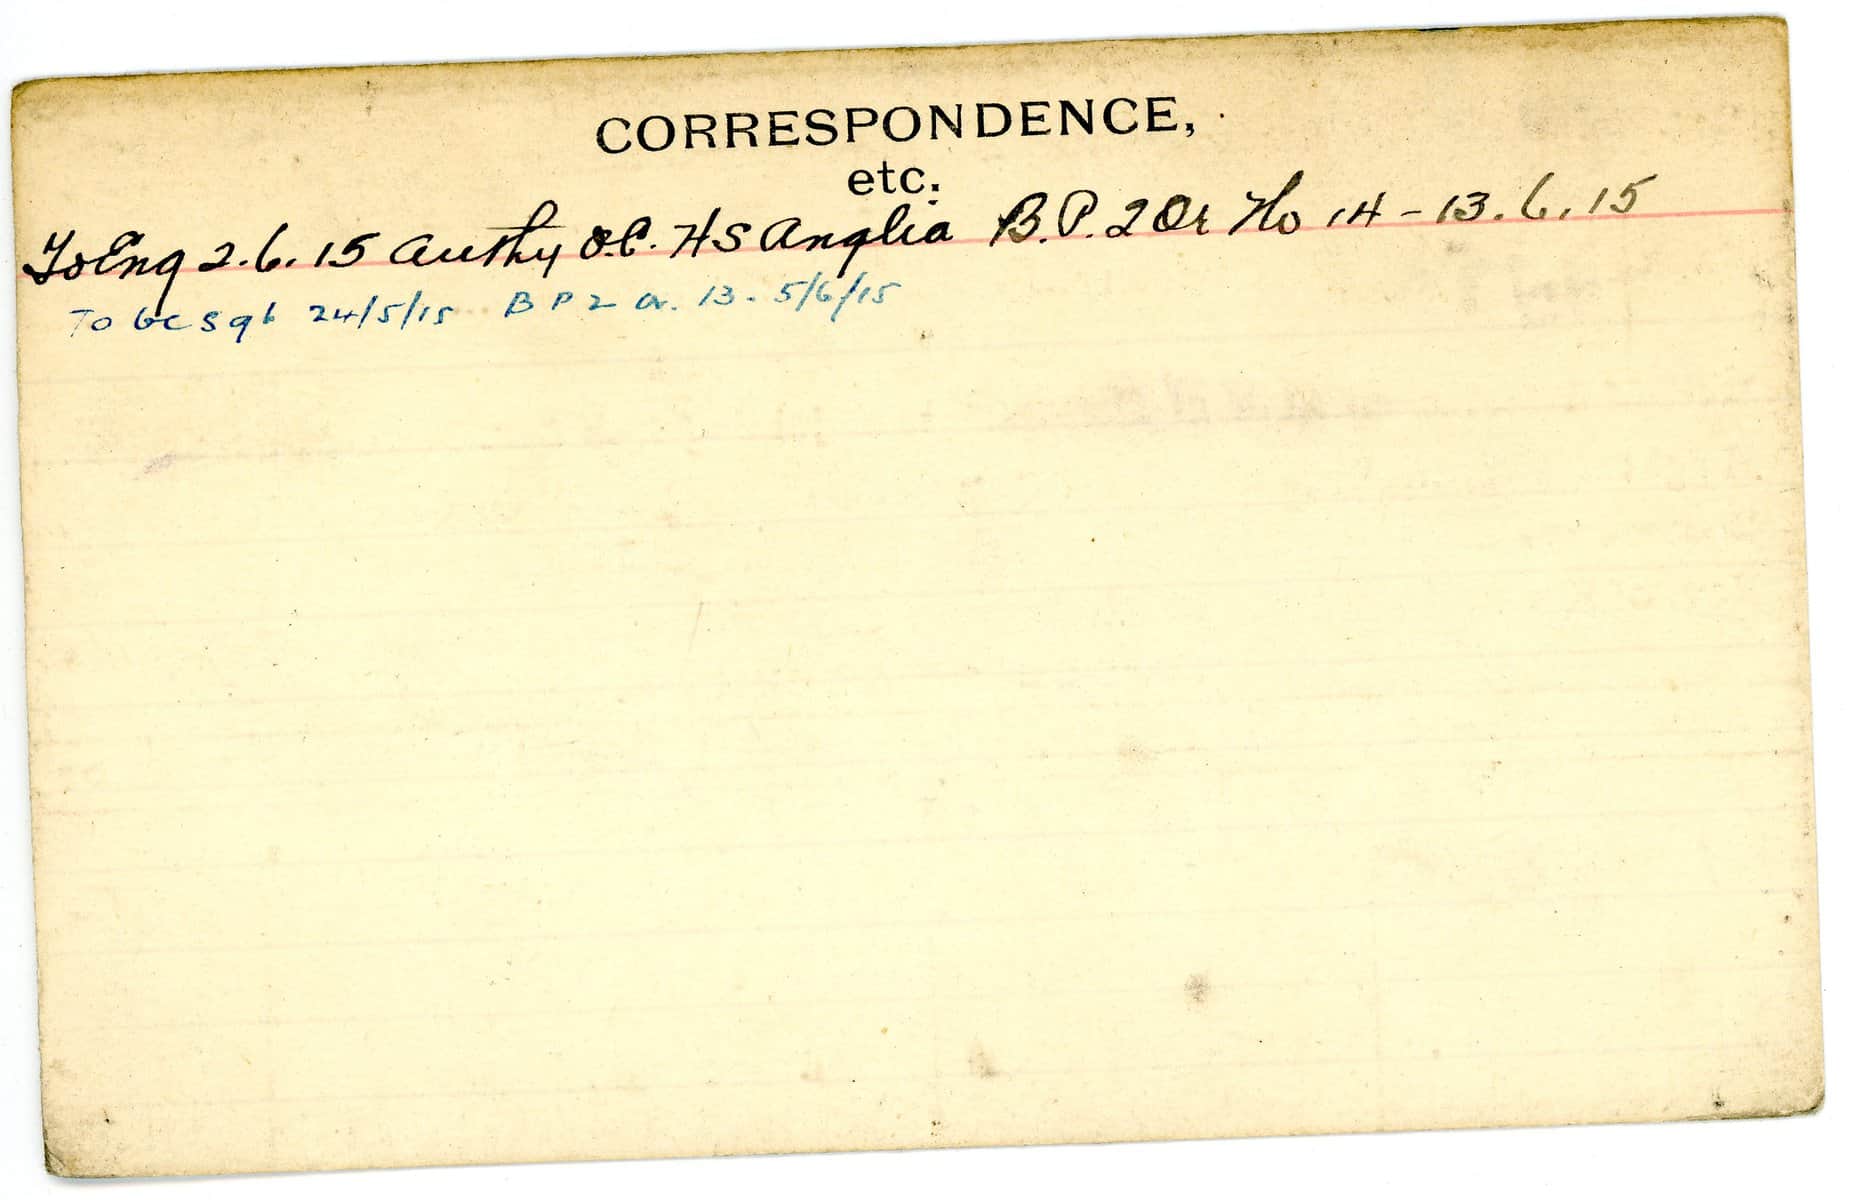 CORRESPONDENCE,
etc.
To Eng 2.6.15 Authy O.C. HS Anglia B.P. 2 Or No 14 - 13.6.15
To 24/5/15 B P 2 Or. 13 - 5/6/15